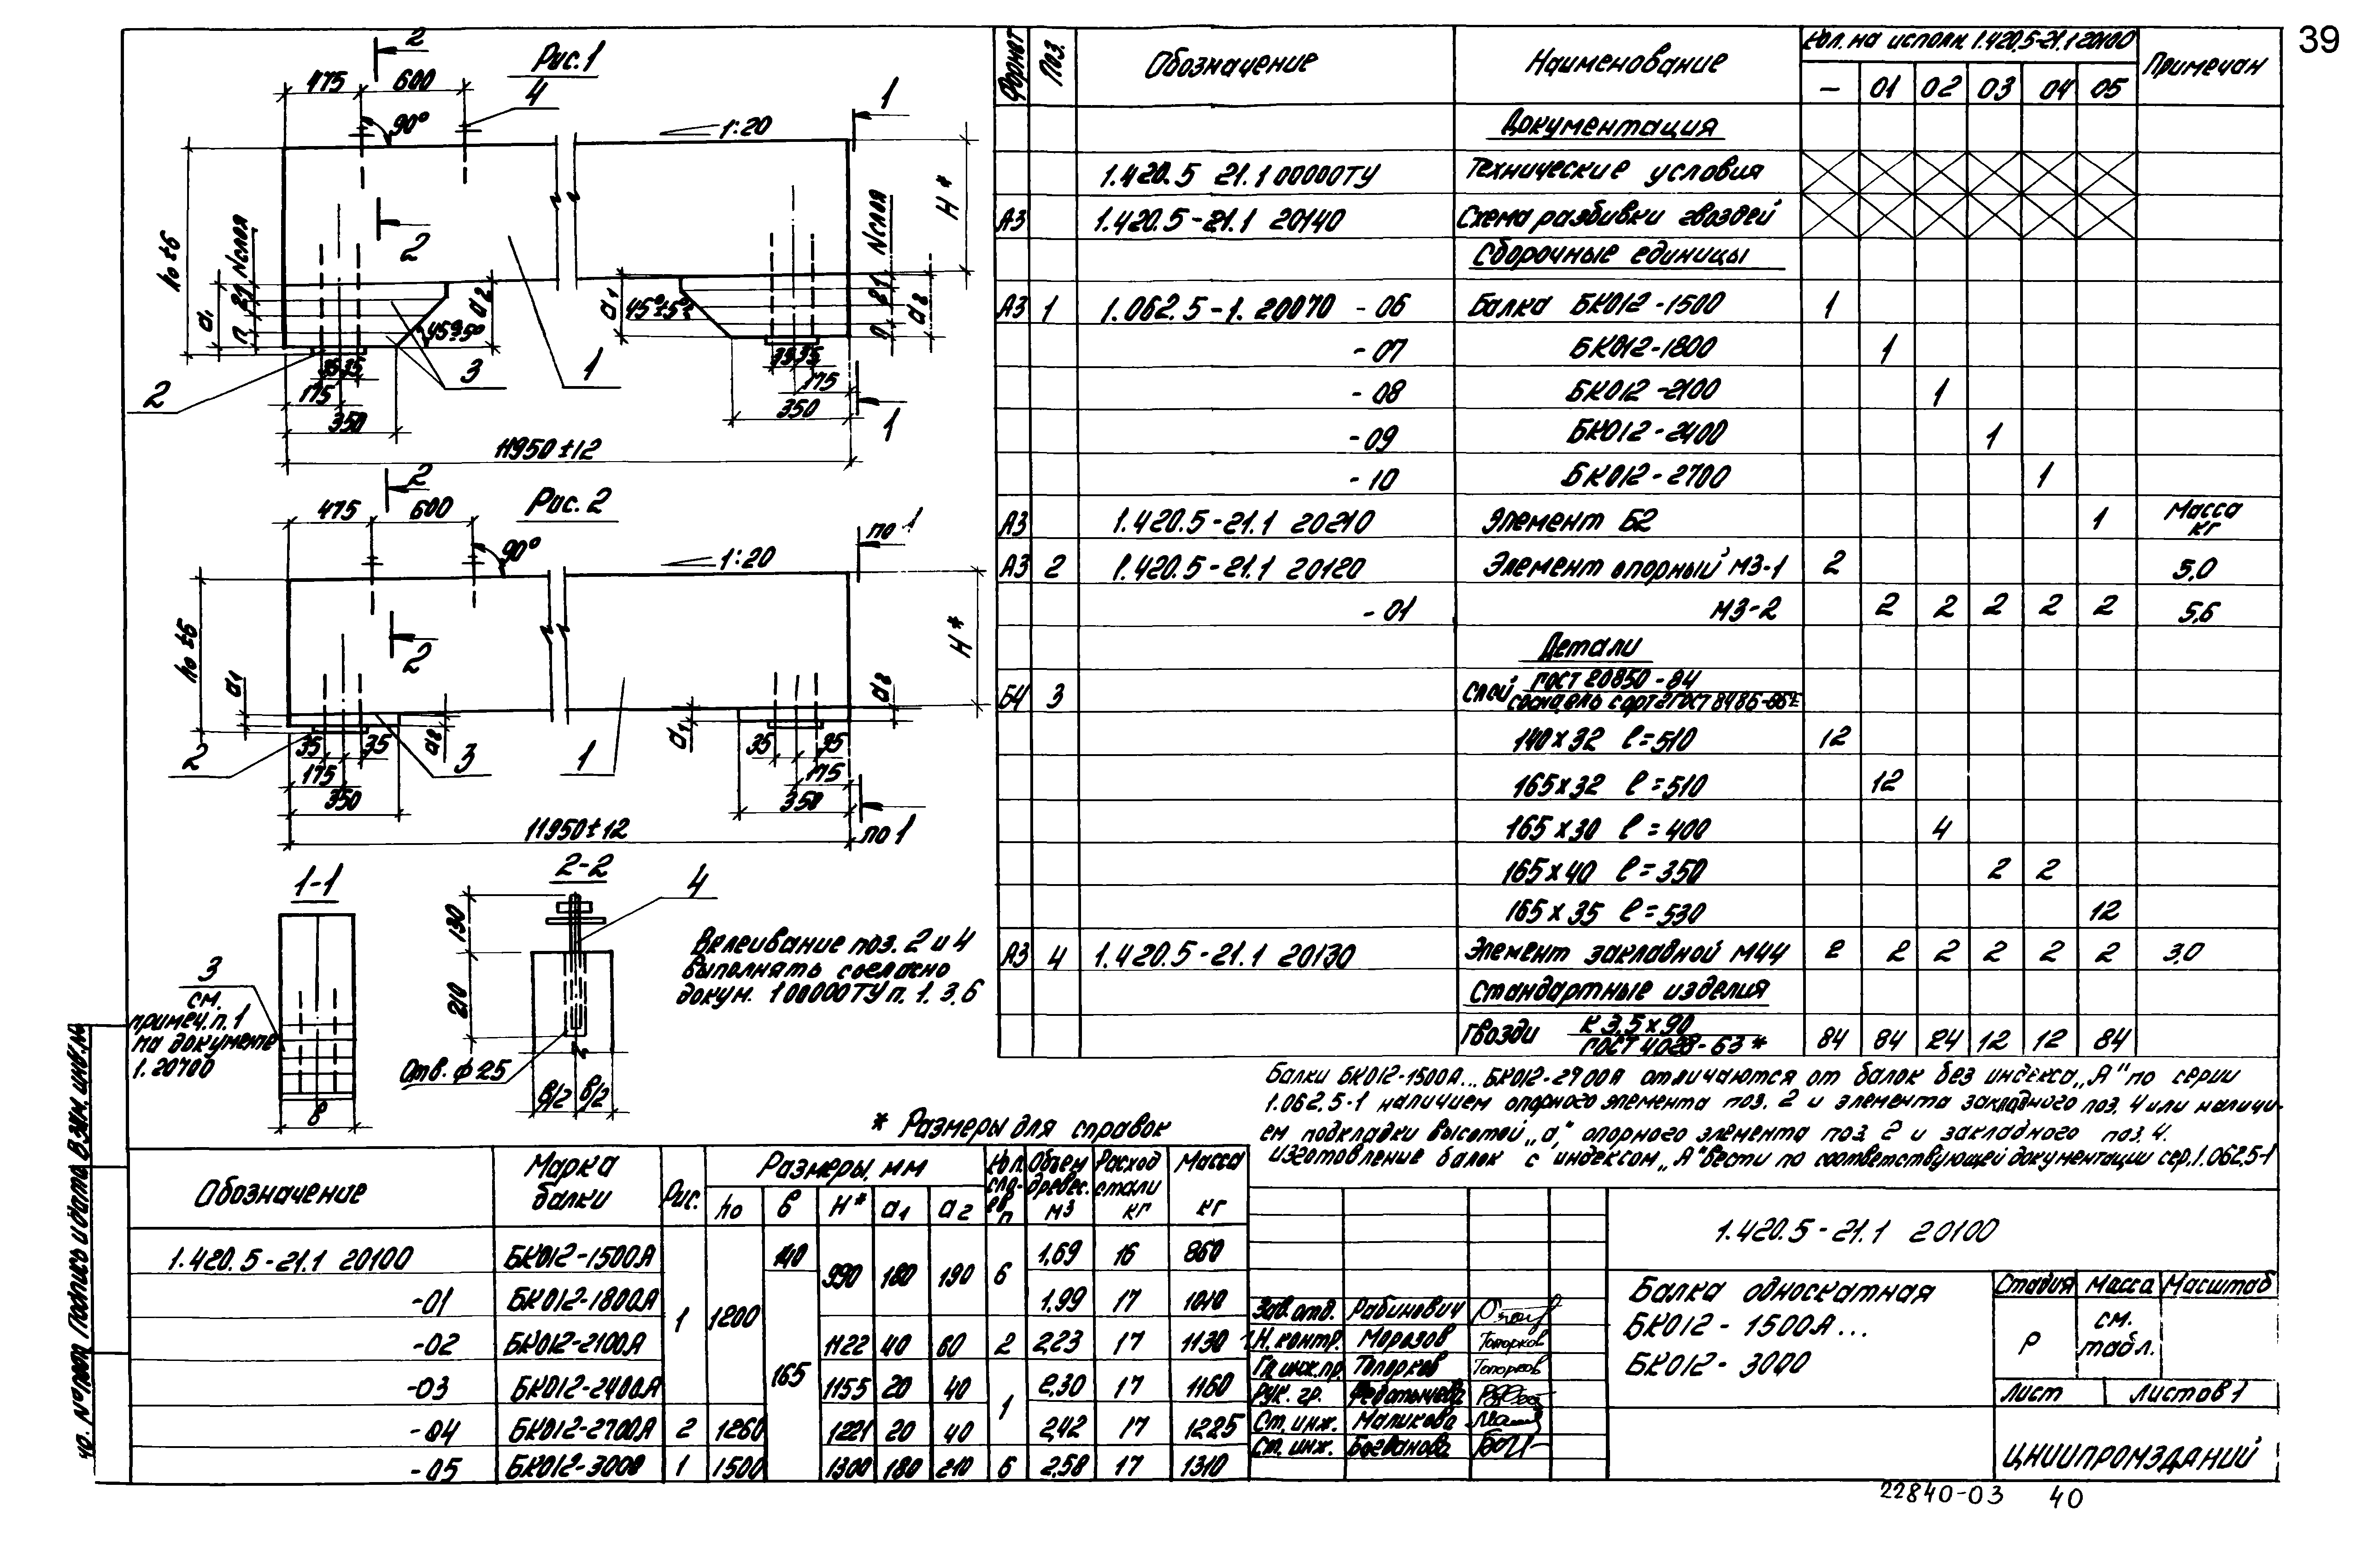 39
Рис. 1
2
475
600
4
90°
1:20
1
h₀ ±6
d₁
n
21
Nслоя
2
45°±5°
d₂
35 35
175
350
3
1
2
d₁
45°±5°
35 35
175
350
Nслоя
d₂
H*
1
11950±12
Рис. 2
2
475
600
90°
1:20
по 1
h₀ ±6
d₁
2
35
35
175
350
d₂
3
1
d₁
35
35
175
350
d₂
H*
по 1
11950±12
1-1
3
см.
примеч. п. 1
на документе
1. 20700
в
2-2
4
130
210
Отв. ф 25
в/2
в/2
Вклеивание поз. 2 и 4
выполнять согласно
докум. 100000ТУ п. 1. 3. 6
Формат
Поз.
Обозначение
Наименование
Кол. на исполн. 1.420.5-21.1 20100
Примечан
— 01 02 03 04 05
Документация
1.420.5 21.1 00000ТУ Технические условия
А3 1.420.5-21.1 20140 Схема разбивки гвоздей
Сборочные единицы
А3 1 1.062.5-1. 20070 -06 Балка БК012-1500 1
-07 БК012-1800 1
-08 БК012-2100 1
-09 БК012-2400 1
-10 БК012-2700 1
А3 1.420.5-21.1 20210 Элемент Б2 1 Масса кг
А3 2 1.420.5-21.1 20120 Элемент опорный М3-1 2 5,0
-01 М3-2 2 2 2 2 2 5,6
Детали
Б4 3 Слой ГОСТ 20850-84
сосна, ель сорт 2 ГОСТ 8486-86Е
140х32 ℓ=510 12
165х32 ℓ=510 12
165х30 ℓ=400 4
165х40 ℓ=350 2 2
165х35 ℓ=530 12
А3 4 1.420.5-21.1 20130 Элемент закладной М44 2 2 2 2 2 2 3,0
Стандартные изделия
Гвозди К 3,5х90
ГОСТ 4028-63* 84 84 24 12 12 84
Балки БК012-1500А... БК012-2700А отличаются от балок без индекса „А" по серии
1.062.5-1 наличием опорного элемента поз. 2 и элемента закладного поз. 4 или наличи-
ем подкладки высотой „а₁" опорного элемента поз. 2 и закладного поз. 4.
Изготовление балок с индексом „А" вести по соответствующей документации сер. 1.062.5-1
* Размеры для справок
Обозначение
Марка балки
Рис.
Размеры, мм
h₀ в H* а₁ а₂
Кол. сло-ев n
Объем древес. м³
Расход стали кг
Масса кг
1.420.5-21.1 20100 БК012-1500А 1 1200 140 990 180 190 6 1,69 16 860
-01 БК012-1800А 165 1,99 17 1010
-02 БК012-2100А 1122 40 60 2 2,23 17 1130
-03 БК012-2400А 1155 20 40 1 2,30 17 1160
-04 БК012-2700А 2 1260 1221 20 40 2,42 17 1225
-05 БК012-3000 1 1500 1300 180 210 6 2,58 17 1310
1.420.5-21.1 20100
Зав. отд. Рабинович
Н. контр. Морозов Топорков
Гл. инж. пр. Топорков Топорков
Рук. гр. Федотычева
Ст. инж. Маликова
Ст. инж. Богданова
Балка односкатная
БК012-1500А...
БК012-3000
Стадия Масса Масштаб
Р см. табл.
Лист Листов 1
ЦНИИПРОМЗДАНИЙ
Подпись и дата
Взам. инв. №
22840-03 40